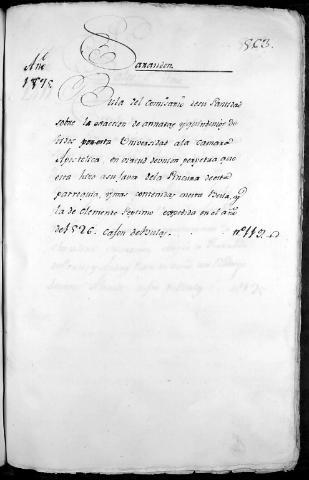 503.
Sarandon
Año
1575
Bula del Comisario de su Santidad
sobre la exaccion de annatas y quindenios de
bidos por esta Universidad a la Camara
Apostolica en virtud de union perpetua, que
esta hizo a su favor de la Sincura de esta
parroquia, y mas contenidas en otra Bula, q
la de Clemente Septimo expedida en el año
de 1526. Cajon de Bulas. nº 113.